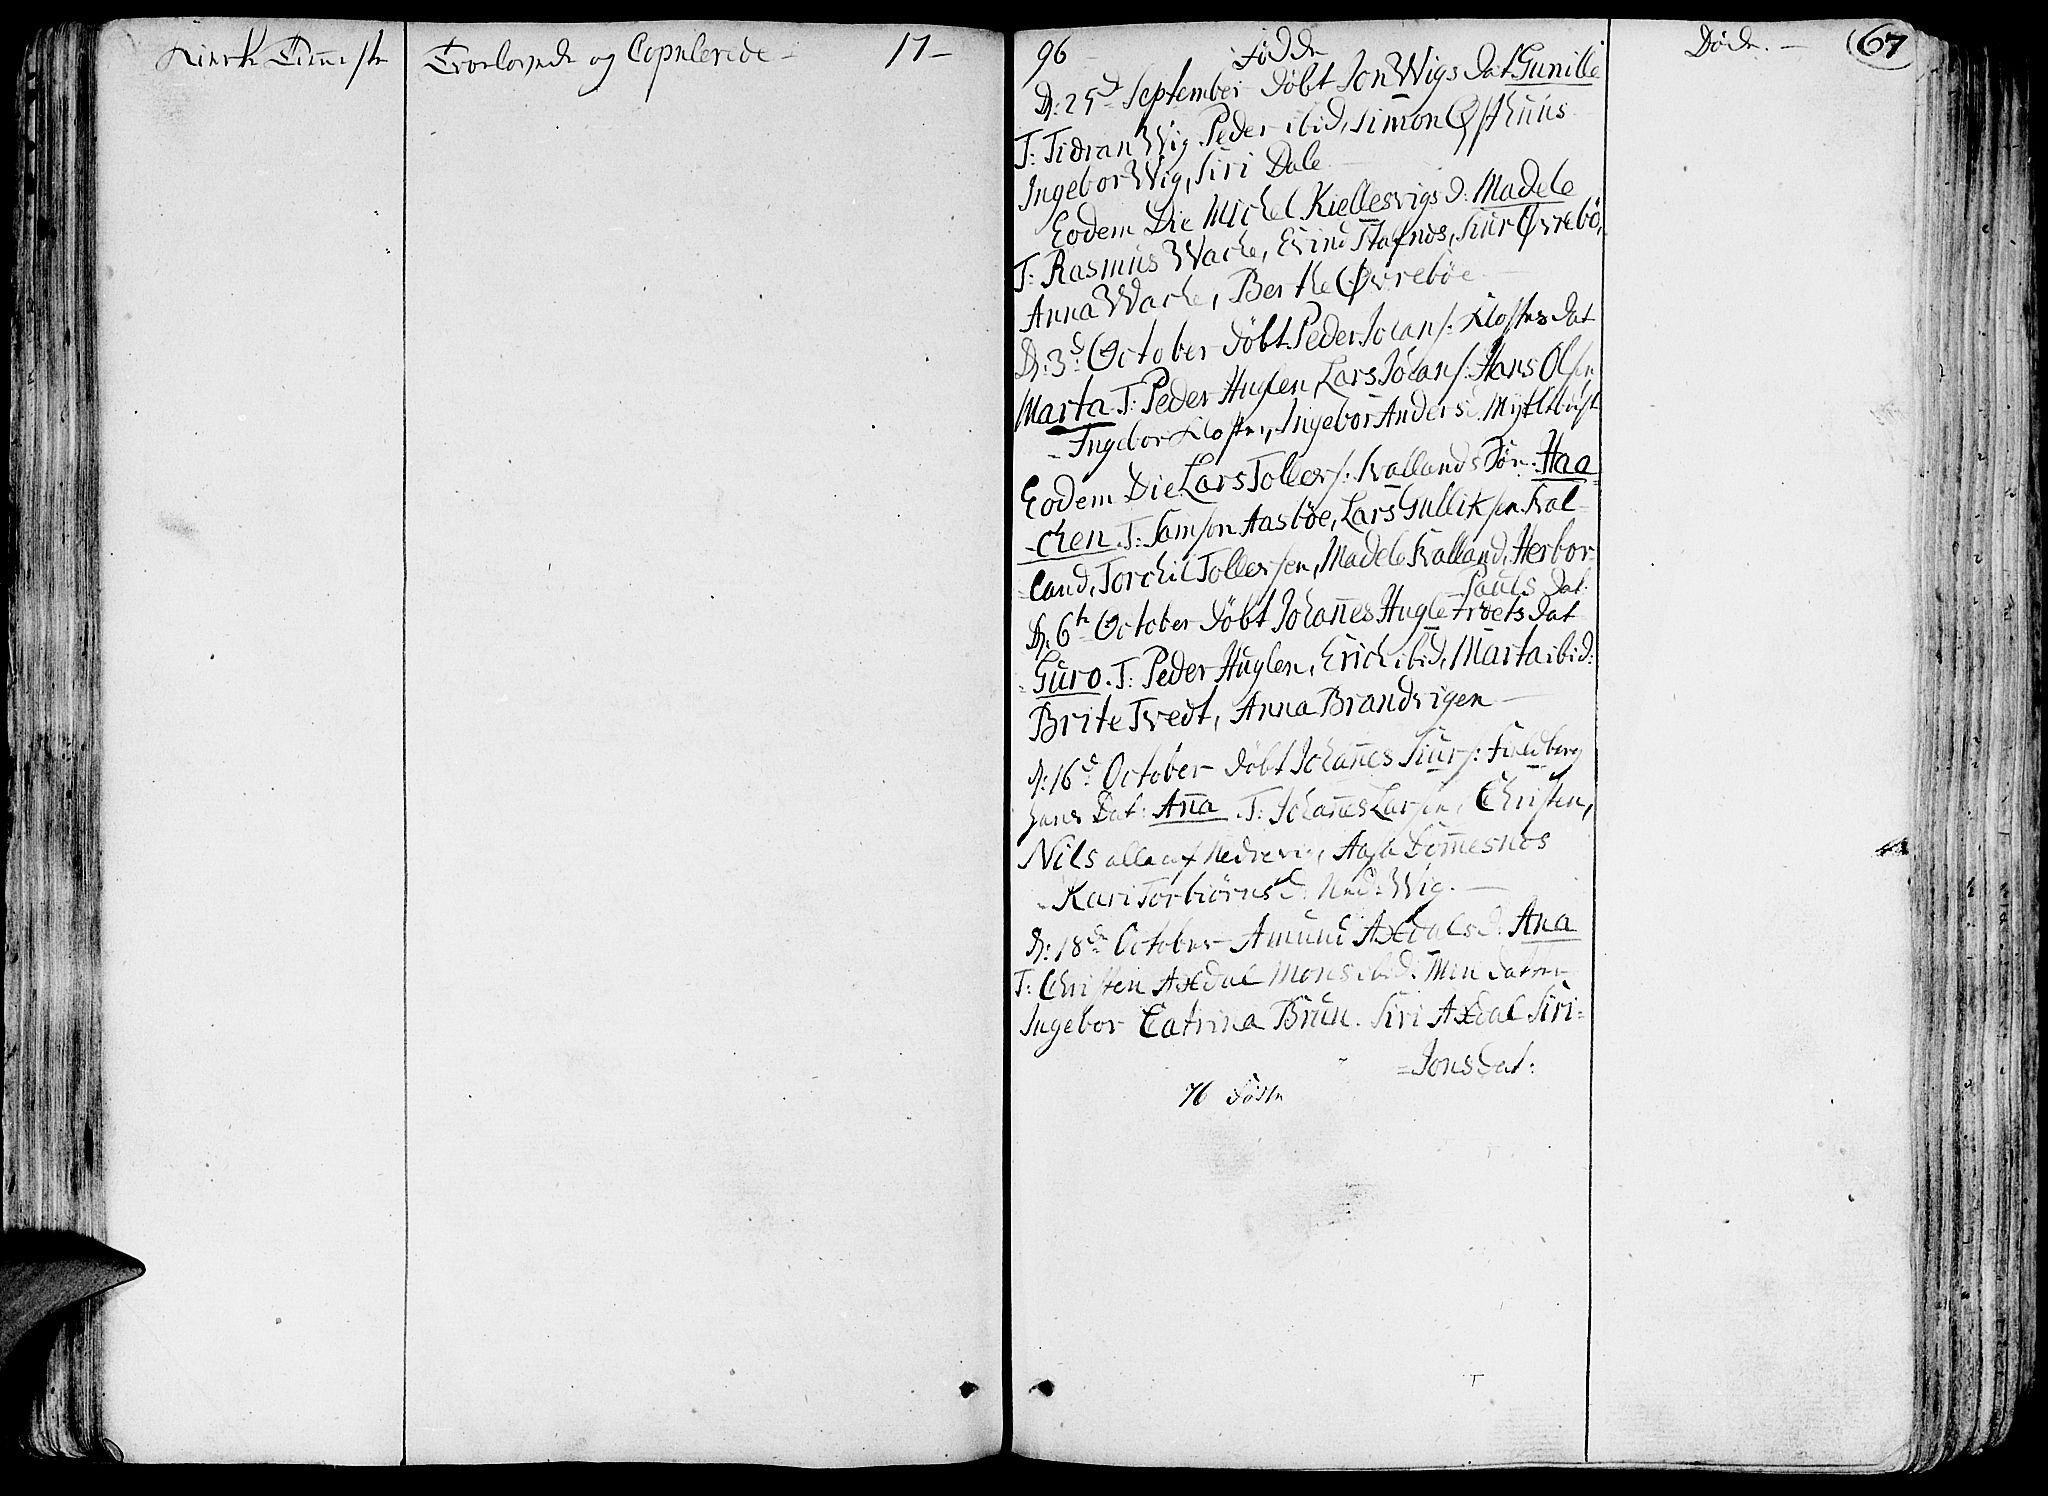 Kirke Tienniste
Troelovede og Copulerede –
17–
96
Fødde
Døde. –
67
D: 25de September døbt Jon Wigs Dat. Gunille
T: Tidran Wig. Peder ibid, Simon Østhuus
Ingebor Wig, Siri Dale
Eodem Die Michel Kiellesvigs D: Madele
T: Rasmus Wache, Evind Stafnes, Siur Øvrebø,
Anna Wache, Berthe Øvrebøe –
D: 3de October døbt Peder Johans: Klosters Dat
Marta T: Peder Huglen, Lars Johans: Hans Olsen
Ingebor Kloster, Ingebor Anders D. Myklebust
Eodem Die Lars Tollers: Kallands Søn: Haa
-chen. T: Samson Aasbøe, Lars Gulliksen Kal-
land, Torchil Tollersen, Madele Kalland, Herbor
Pauls Dat:
D: 6te October døbt Johannes Hugletvets Dat
Guro. T: Peder Huglen, Erich ibid, Marta ibid:
Brite Tvedt, Anna Brandvigen –
D: 16de October døbt Johannes Siurs: Fieldberg
hans Dat: Anna T: Johannes Larsen, Christen,
Nils alle af Nedrevig, Aasa Dommesnes
Kari Torbiørns D. Ned: Wig. –
D: 18de October Amund Axdals D. Ana
T: Christen Axdal Mons ibid: Min Datter
Ingebor Catrina Brun. Siri Axdal Siri=
=Jons Dat:
76 Fødde